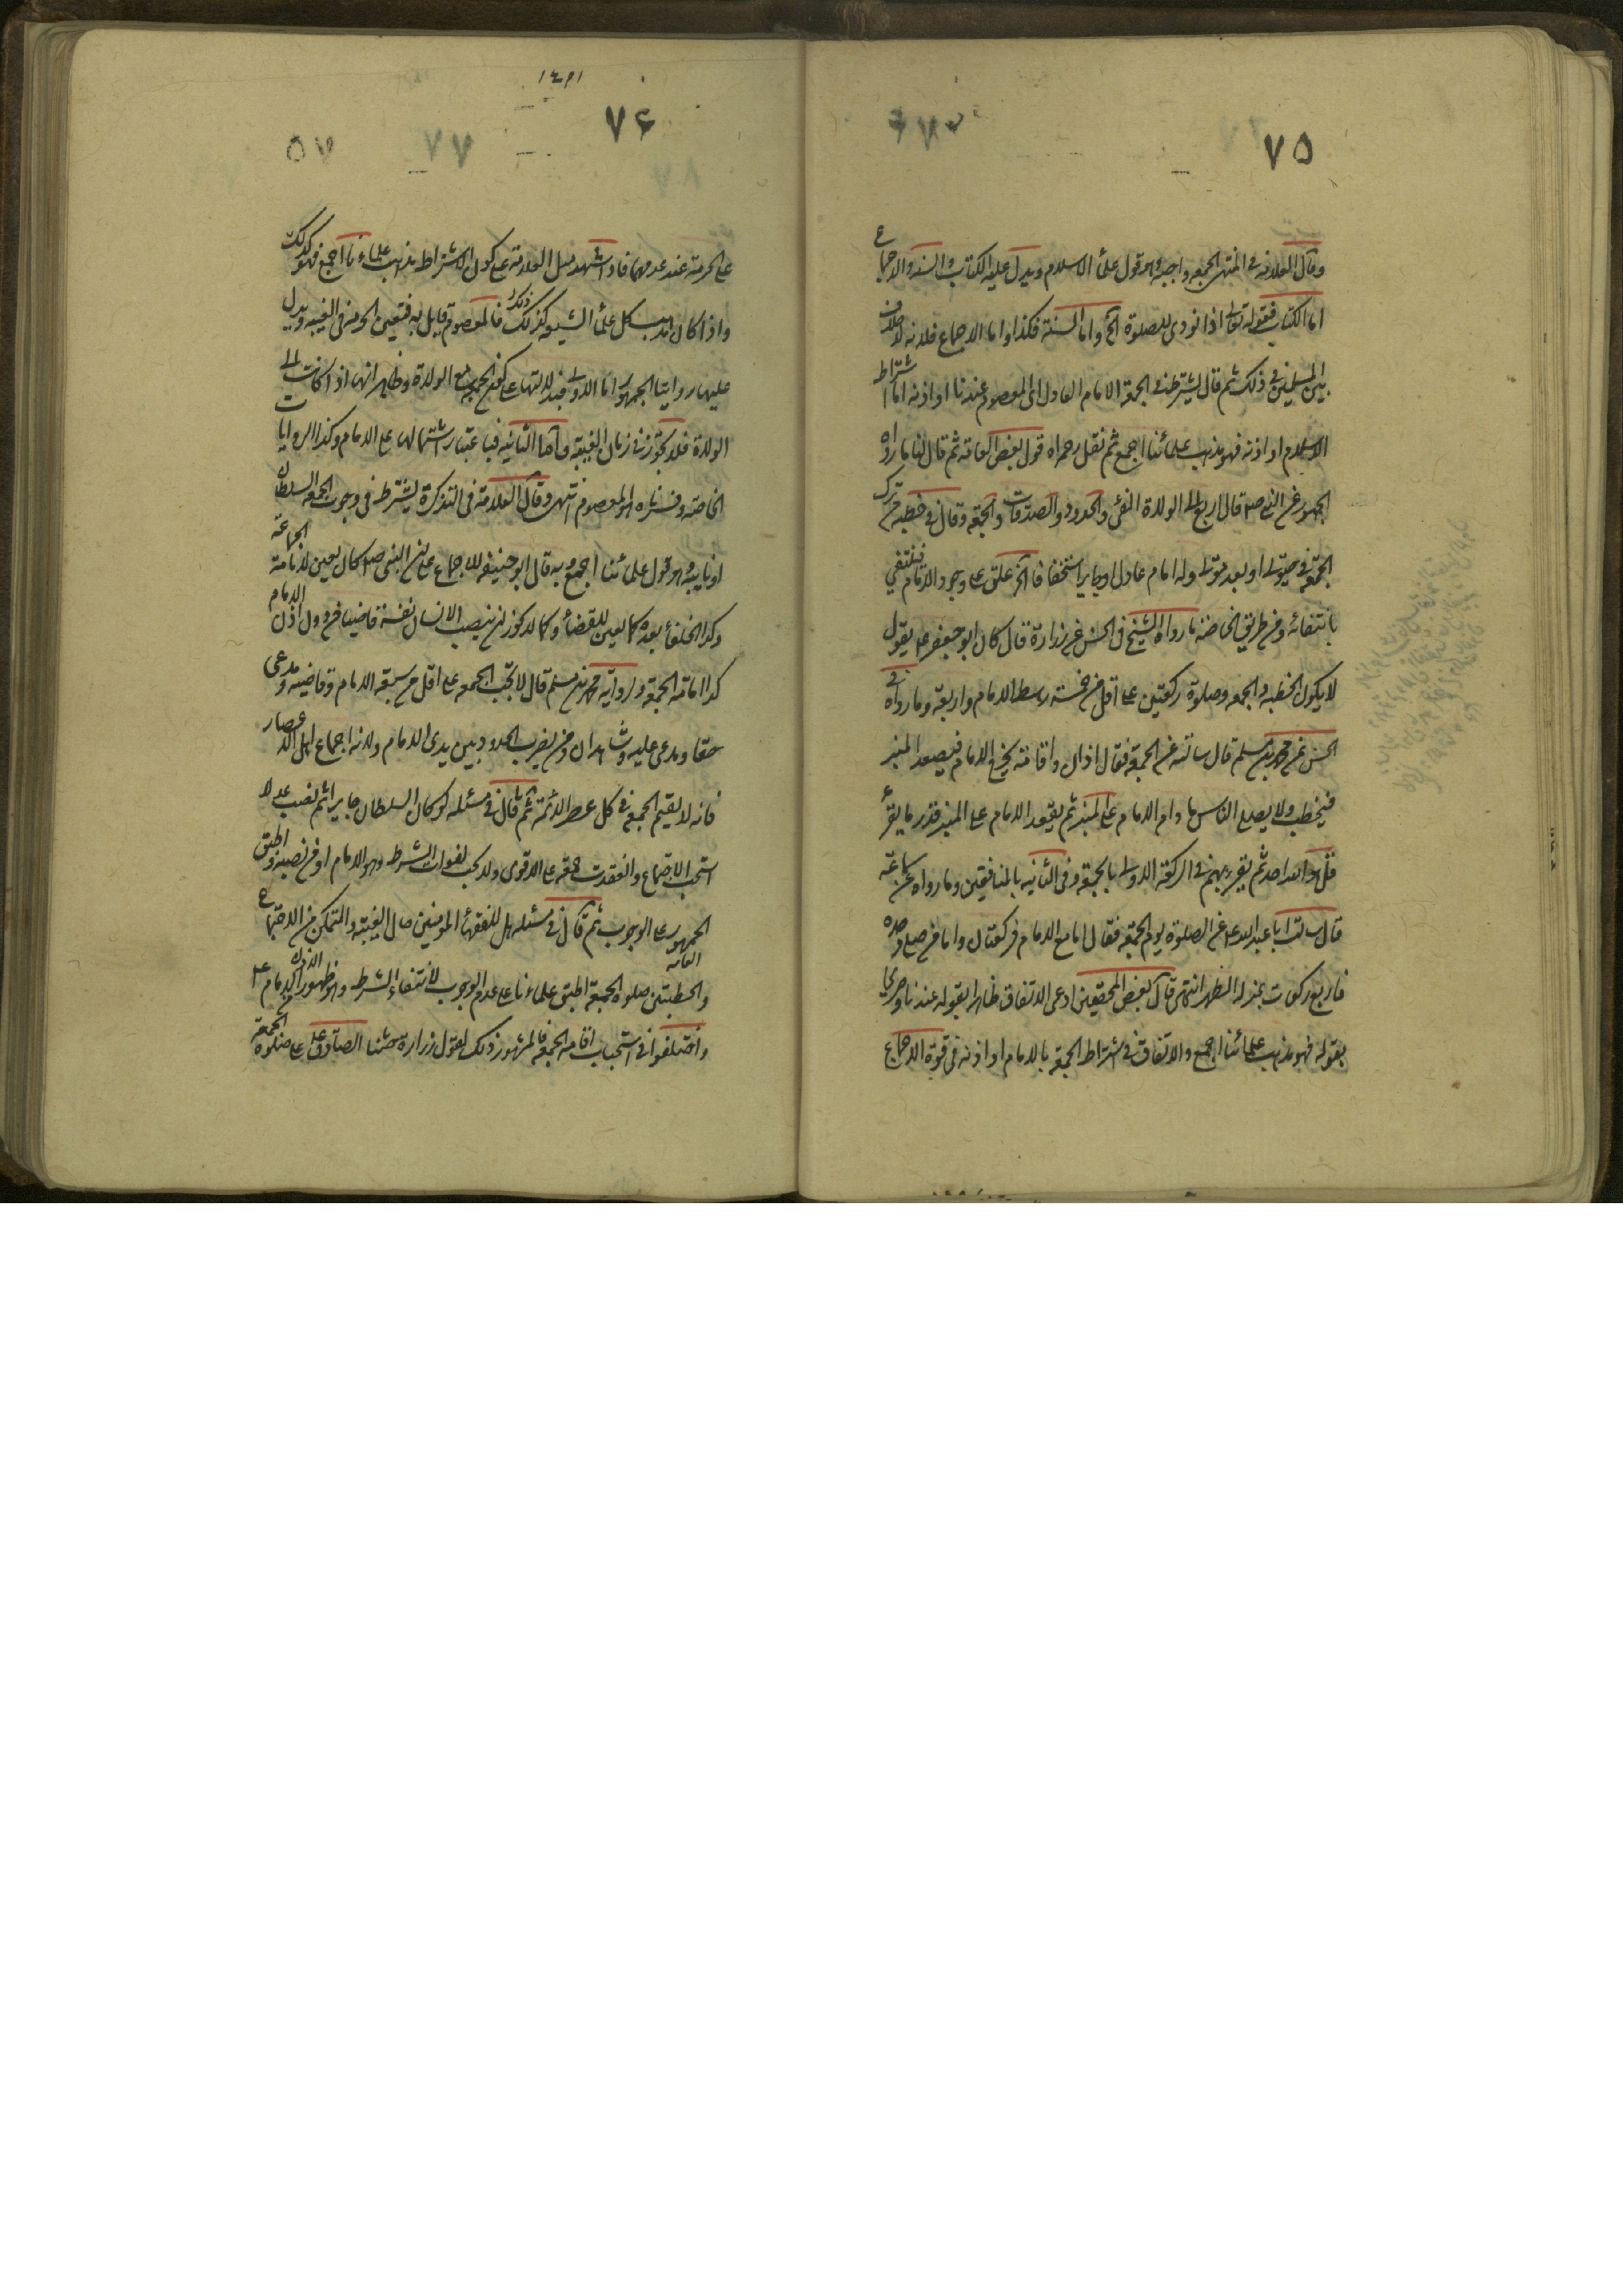 ٧٥
وقال العلامة فى المنتهى الجمعه واجبة وهو قول علماء الاسلام ويدل عليه الكتاب والسنة والاجماع
اما الكتاب فقوله تعالى اذا نودى للصلوة الخ واما السنة فكذا واما الاجماع فلانه لا خلاف
بين المسلمين فى ذلك ثم قال يشترط فى الجمعة الامام العادل اى المعصوم عندنا او اذنه اما اشتراط
الاسلام او اذنه فهو مذهب علمائنا اجمع ثم نقل رحمه اه قول بعض العامة ثم قال لنا ما رواه
الجمهور عن النبى ص قال اربع الى الولاة الفئ والحدود والصدقات والجمعة وقال فى خطبه من ترك
الجمعة فى حيوتى او بعد موتى وله امام عادل او جاير استخفافا الخ علق على وجود الامام فينتفي
بانتفائه ومن طريق الخاصة ما رواه الشيخ فى الحسن عن زرارة قال كان ابو جعفر ع يقول
لا يكون الخطبه والجمعه وصلوة ركعتين على اقل من خمسة رهط الامام واربعة وما رواه فى
الحسن عن محمد بن مسلم قال سالته عن الجمعة فقال اذان واقامة يخرج الامام فيصعد المنبر
فيخطب ولا يصلى الناس ما دام الامام على المنبر ثم يقعد الامام على المنبر قدر ما يقرء
قل هو الله احد ثم يقرء بهم فى الركعة الاولى بالجمعة وفى الثانيه بالمنافقين وما رواه عن سماعة
قال سالت ابا عبد الله ع عن الصلوة يوم الجمعة فقال اما مع الامام فركعتان واما من صلى وحده
فاربع ركعات بمنزلة الظهر انتهى قال بعض المحققين ادعى الاتفاق ظاهرا بقوله عندنا وصريحا
بقوله فهو مذهب علمائنا اجمع والاتفاق فى اشتراط الجمعة بالامام او اذنه فى قوة الاجماع
١٤٢١
٧۶
٧٧
على الحرمة عند عدمهما فاذا شهد مثل العلامة على كون الاشتراط مذهب علماءنا اجمع فهو كذلك
واذا كان مذهب كل علماء الشيعه كذلك فالمعصوم قايل به فتعين الحرمة فى الغيبه ويدل
عليها روايتا الجمهور اما الاولى فبدلالتها على كون الجمعة مع الولاة وظاهر انها اذا كانت الى
الولاة فلا تجوز فى زمان الغيبة واما الثانيه فباعتبار اشتمالها على الامام وكذا الروايات
الخاصة وفسرناه المعصوم انتهى وقال العلامة فى التذكرة يشترط فى وجوب الجمعه السلطان
او نايبه وهو قول علمائنا اجمع وبه قال ابو حنيفه للاجماع على ان النبى ص كان يعين لامامة الجماعة
وكذا الخلفاء بعده كما يعين للقضاء وكما لا يجوز ان ينصب الانسان نفسه قاضيا من دون اذن الامام
كذا امامة الجمعة ورواية محمد بن مسلم قال لا تجب الجمعه على اقل من سبعه الامام وقاضيه ومدعى
حقا ومدعى عليه وشاهدان ومن يضرب الحدود بين يدى الامام ولانه اجماع اهل الاعصار
فانه لا يقيم الجمعة فى كل عصر الا الائمة ثم قال فى مسئله لو كان السلطان جايرا ثم نصب عدلا
استحب الاجتماع وانعقدت جمعة على الاقوى ولا تجب لفوات الشرط وهو الامام او من نصبه واطبق
الجمهور العامه على الوجوب ثم قال فى مسئله هل للفقهاء المؤمنين حال الغيبة والتمكن من الاجتماع
والخطبتين صلوة الجمعة اطبق علماءنا على عدم الوجوب لانتفاء الشرط وهو ظهور الاذن من الامام ع
واختلفوا فى استحباب اقامة الجمعة فالمشهور ذلك لقول زرارة حثنا الصادق ع على صلوة الجمعة